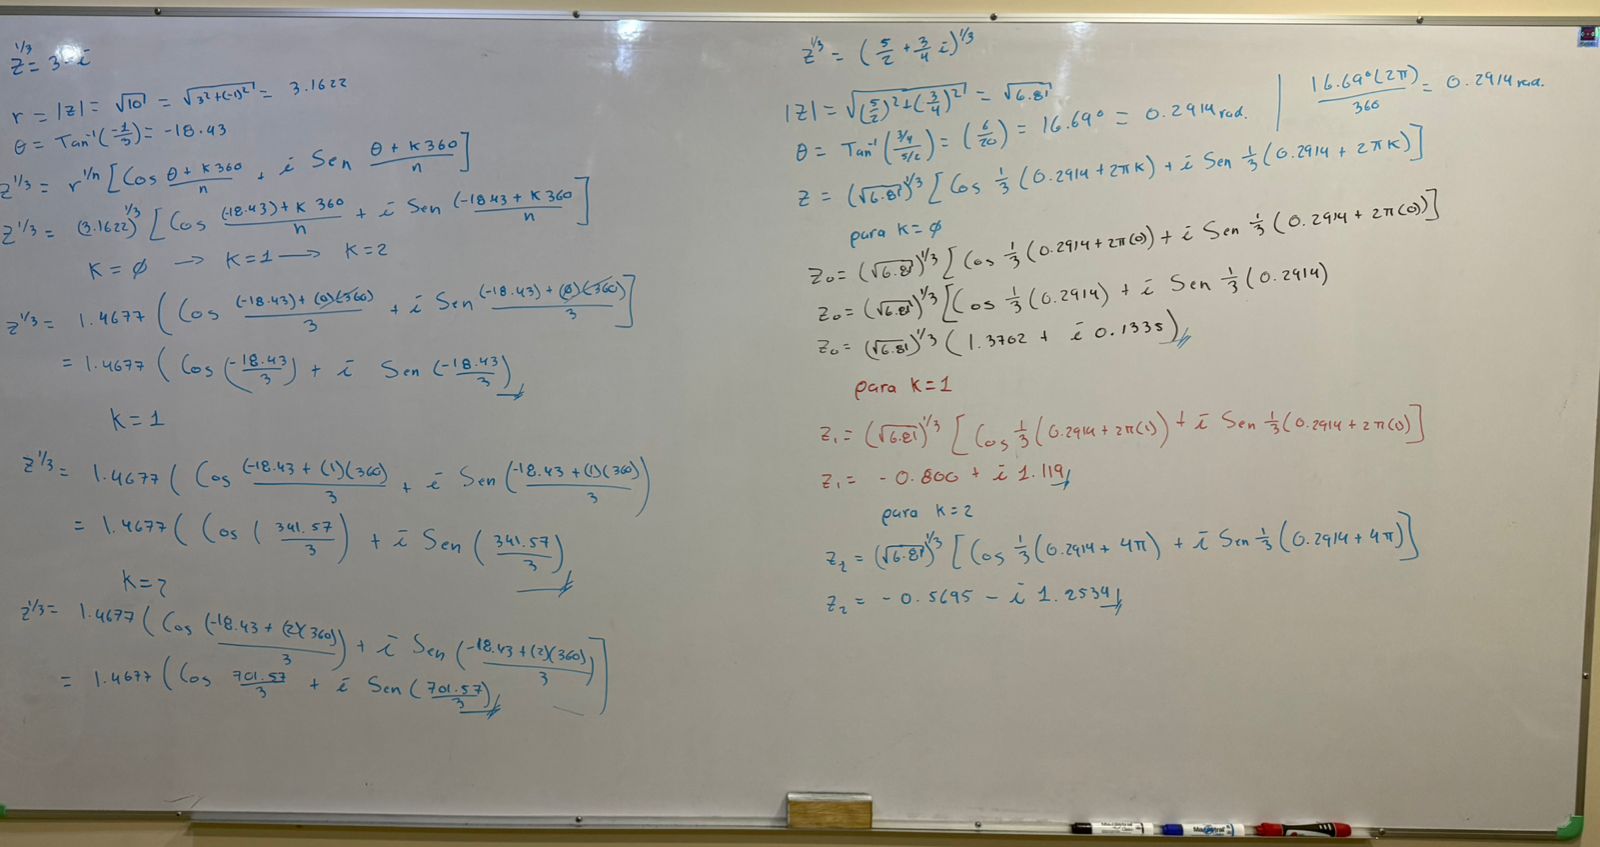 z^1/3 = 3 - i
r = |z| = √10 = √3²+(-1)² = 3.1622
θ = Tan⁻¹(-1/3) = -18.43
z^1/3 = r^1/n [Cos (θ + K360)/n + i Sen (θ + K360)/n]
z^1/3 = (3.1622)^1/3 [Cos ((-18.43) + K360)/n + i Sen (-18.43 + K360)/n]
K = ∅ → K = 1 → K = 2
z^1/3 = 1.4677 (Cos ((-18.43) + (0)(360))/3 + i Sen ((-18.43) + (0)(360))/3]
= 1.4677 (Cos (-18.43/3) + i Sen (-18.43/3)
K = 1
z^1/3 = 1.4677 (Cos (-18.43 + (1)(360))/3 + i Sen (-18.43 + (1)(360))/3)
= 1.4677 (Cos (341.57/3) + i Sen (341.57/3)
K = 2
z^1/3 = 1.4677 (Cos (-18.43 + (2)(360))/3) + i Sen (-18.43 + (2)(360))/3]
= 1.4677 (Cos 701.57/3 + i Sen (701.57/3)
z^1/3 = (5/2 + 3/4 i)^1/3
|z| = √(5/2)² + (3/4)² = √6.81
θ = Tan⁻¹((3/4)/(5/2)) = (6/20) = 16.69° = 0.2914 rad.
16.69°(2π)/360 = 0.2914 rad.
z = (√6.81)^1/3 [Cos 1/3 (0.2914 + 2πK) + i Sen 1/3 (0.2914 + 2πK)]
para K = ∅
z₀ = (√6.81)^1/3 [Cos 1/3 (0.2914 + 2π(0)) + i Sen 1/3 (0.2914 + 2π(0))]
z₀ = (√6.81)^1/3 [Cos 1/3 (0.2914) + i Sen 1/3 (0.2914)
z₀ = (√6.81)^1/3 (1.3702 + i 0.1335)
para K = 1
z₁ = (√6.81)^1/3 [Cos 1/3 (0.2914 + 2π(1)) + i Sen 1/3 (0.2914 + 2π(1)]
z₁ = -0.800 + i 1.119
para K = 2
z₂ = (√6.81)^1/3 [Cos 1/3 (0.2914 + 4π) + i Sen 1/3 (0.2914 + 4π)]
z₂ = -0.5695 - i 1.2534
Magistral